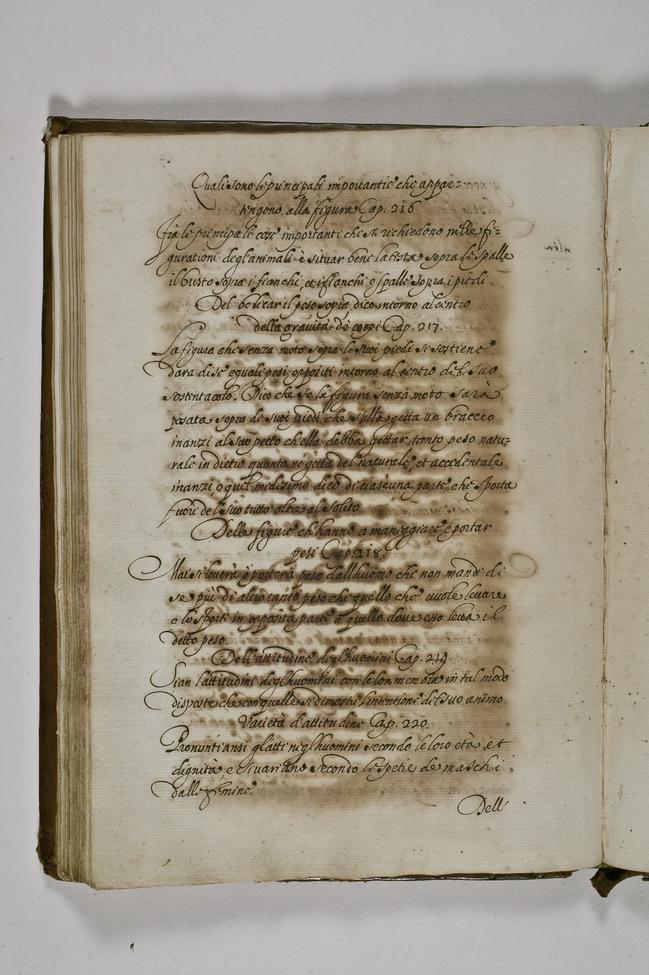 Quali sono le principali importantie che appar=
tengono alla figura Cap. 216
Fra le principale cose importanti che si richiedono nelle fi=
gurationi degl'animali è situar bene la testa sopra le spalle
il busto sopra i fianchi, et i fianchi e spalle sopra i piedi.
Del bilicar il peso sopia dico intorno al centro
della gravità de corpi Cap. 217.
La figura che senza moto sopra le suoi piedi si sostiene
dara di se eguali pesi oppositi intorno al centro del suo
sostentacolo. Dico che se la figura senza moto sarà
posata sopra de suoi piedi che s'ella getta un braccio
inanzi al suo petto ch'ella debba gettar tanto peso natu=
rale in dietro quanto ne getta del naturale, et accidentale
inanzi e quel medesimo dico di ciascuna parte che sporta
fuori del suo tutto oltre al solito
Delle figure ch'hanno a maneggiare e portar
pesi Cap. 218.
Mai si leverà o porterà peso dall'huomo che non mandi di
se più di altro tanto peso che quello che vuole levare
e lo sporti in opposita parte a quello dove esso leva il
detto peso.
Dell'attitudine degl'huomini Cap. 219
Sian l'attitudini degl'huomini con le lor membra in tal modo
disposte che con quelle si dimostri l'intentione del suo animo
Varietà d'attitudine Cap. 220.
Pronuntiansi gl'atti negl'huomini secondo le loro età, et
dignità e si variano secondo le spetie de maschi
dalle femine.
Dell'